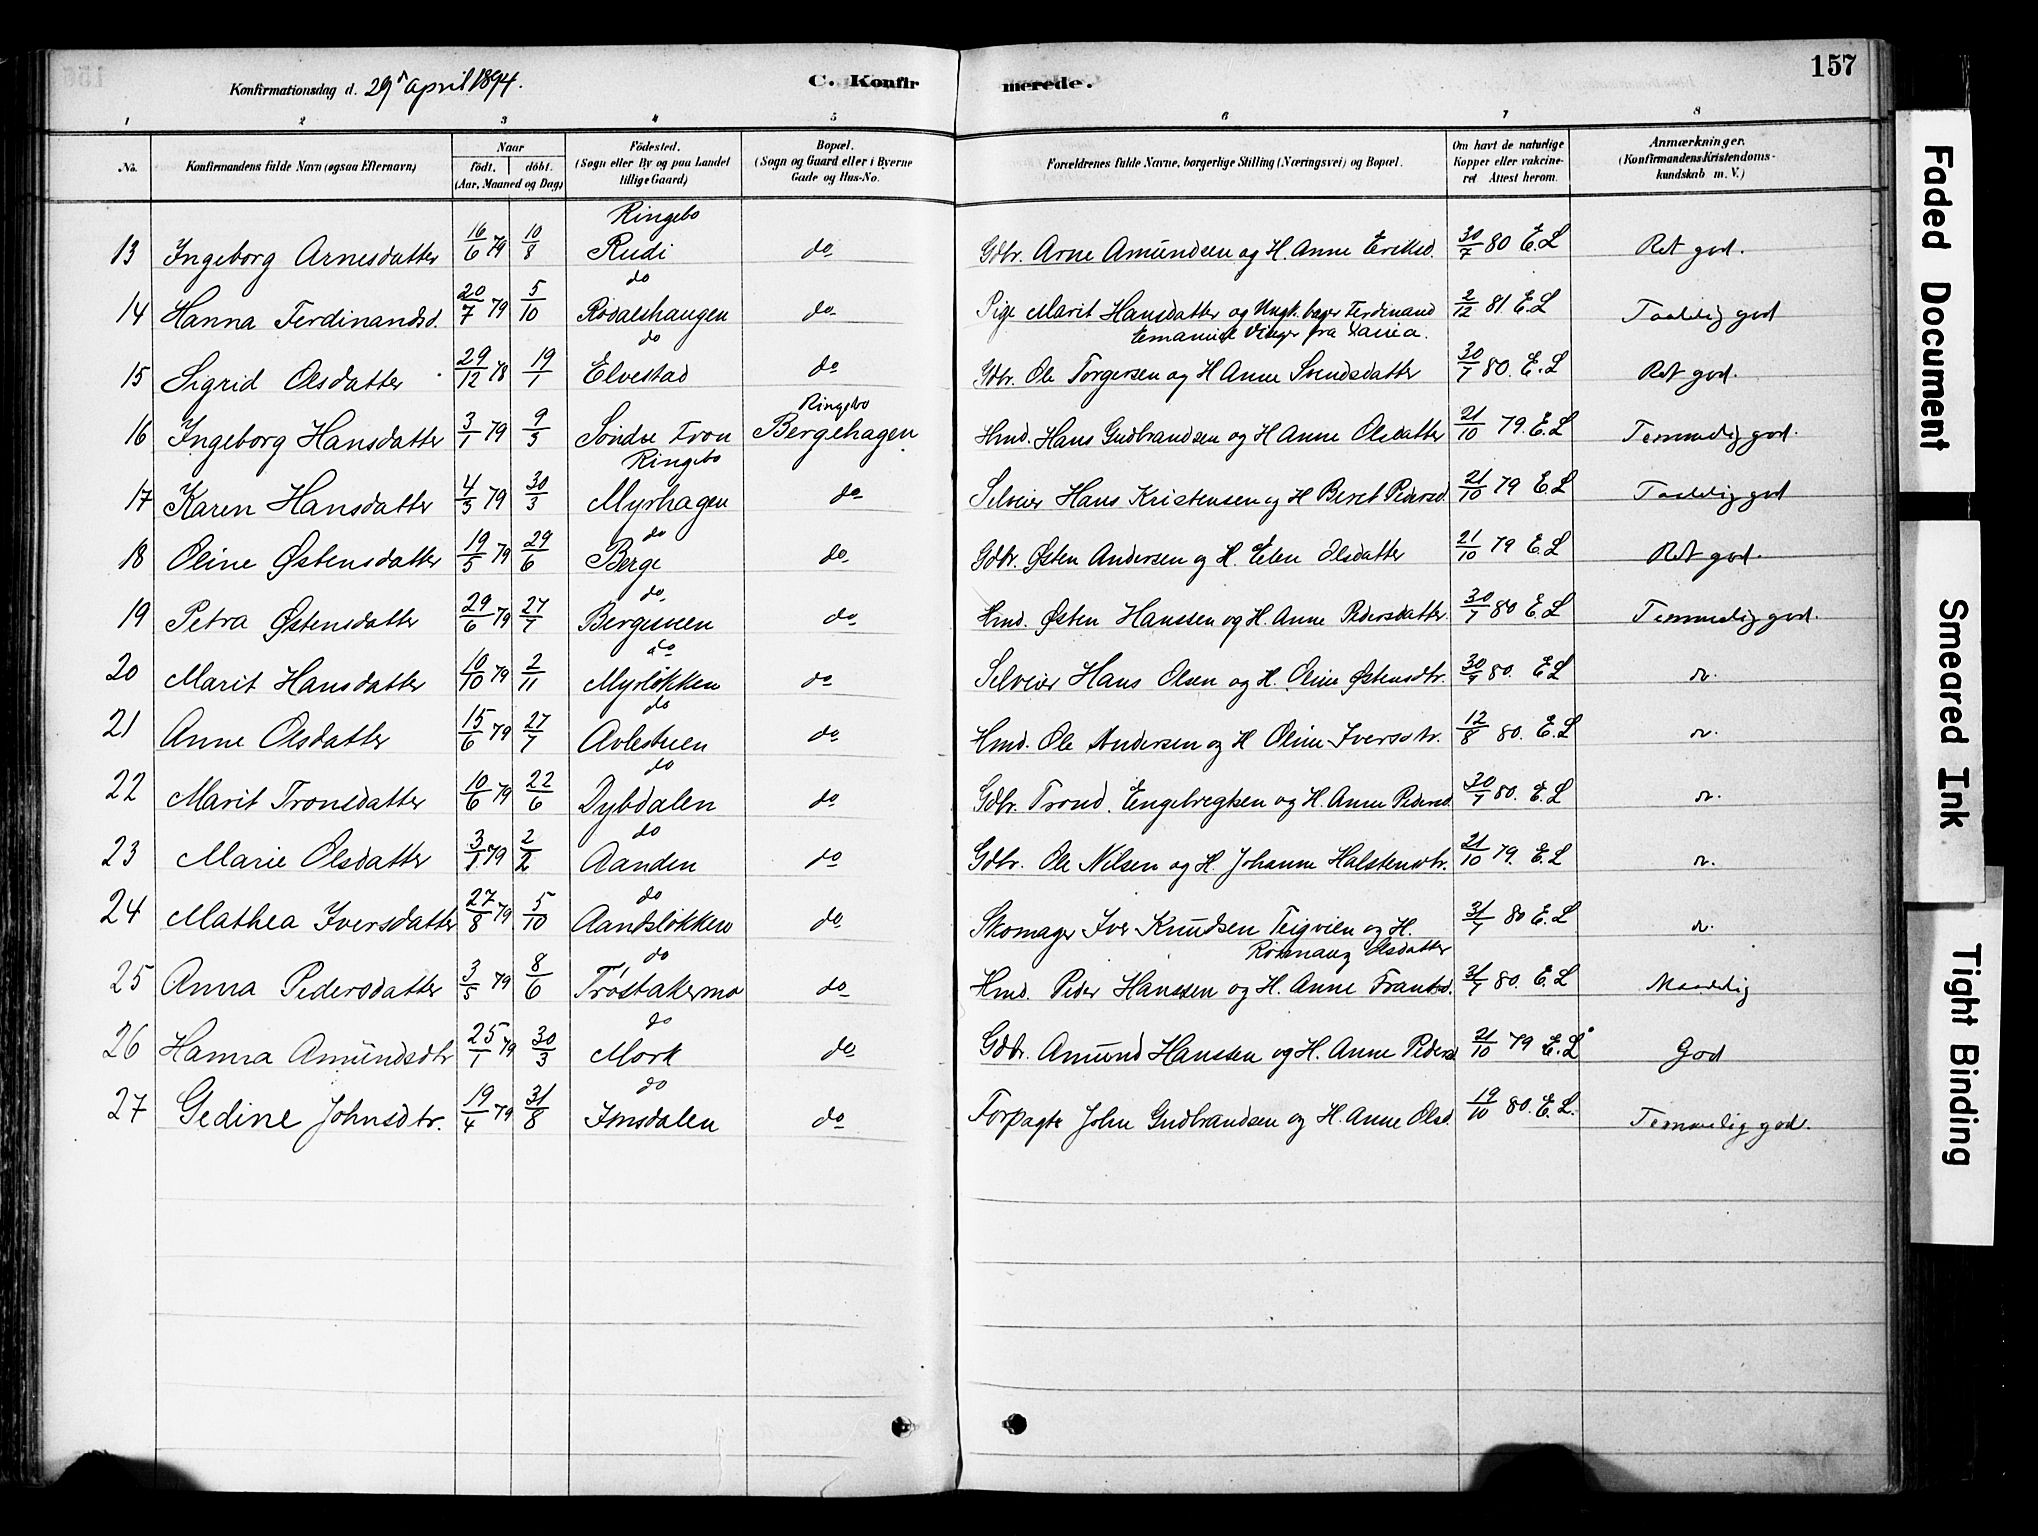 157
Konfirmationsdag d. 29de April 1894.
C. Konfirmerede.
1 2 3 4 5 6 7 8
No. Konfirmandens fulde Navn (ogsaa Efternavn) Naar født. døbt. (Aar, Maaned og Dag) Fødested. (Sogn eller By og paa Landet tillige Gaard) Bopæl. (Sogn og Gaard eller i Byerne Gade og Hus-No. Forældrenes fulde Navne, borgerlige Stilling (Næringsvei) og Bopæl. Om havt de naturlige Kopper eller vakcineret Attest herom. Anmærkninger. (Konfirmandens Kristendomskundskab m. V.)
13 Ingeborg Arnesdatter 16/6 79 10/8 Ringebo Rudi do Gdbr. Arne Amundsen og H. Anne Eriksd. 30/7 80 E.L Ret god.
14 Hanna Ferdinandsd. 20/7 79 5/10 do Rødalshaugen do Pige Marit Hansdatter og Ungk. Ferdinand Emanuel fra 2/12 81 E.L Taalelig god
15 Sigrid Olsdatter 29/12 78 19/1 do Elvestad do Gdbr. Ole Torgersen og H Anne Svendsdatter 30/7 80. E.L Ret god.
16 Ingeborg Hansdatter 3/1 79 9/3 Søndre Fron Ringebo Bergehagen Hmd. Hans Gudbrandsen og H Anne Olsdatter 21/10 79. E.L Temmelig god.
17 Karen Hansdatter 4/3 79 30/3 Ringebo Myrhagen do Selveier Hans Kristensen og H Beret Pedersd. 21/10 79 E.L Taalelig god
18 Oline Østensdatter 19/5 79 29/6 do Berge do Gdbr. Østen Andersen og H. Elen Olsdatter 21/10 79 E.L Ret god.
19 Petra Østensdatter 29/6 79 27/7 do Bergeveen do Hmd. Østen Hanssen og H. Anne Pedersdatter 30/7 80 E.L Temmelig god.
20 Marit Hansdatter 10/10 79 2/11 do Myrløkken do Selveier Hans Olsen og H. Oline Østensdtr. 30/7 80. E.L
21 Anne Olsdatter 15/6 79 27/7 do Avlestuen do Hmd. Ole Andersen og H Oline Iversdtr. 12/8 80. E.L
22 Marit Tronsdatter 10/6 79 22/6 do Dybdalen do Gdbr. Trond Engebregtsen og H. Anne Pedersd. 30/7 80. E.L
23 Marie Olsdatter 3/1 79 2/2 do Aanden do Gdbr. Ole Nilsen og H. Johanne Halstensdtr. 21/10 79. E.L
24 Mathea Iversdatter 27/8 79 5/10 do Aandsløkken do Skomager Iver Knudsen Teigvien og H. Rønnaug Olsdatter 31/7 80 E.L
25 Anna Pedersdatter 3/5 79 8/6 do Trøstakermo do Hmd. Peder Hanssen og H. Anne Frantsd. 31/7 80. E.L Maadelig
26 Hanna Amundsdtr 25/1 79 30/3 do Mork do Gdbr. Amund Hanssen og H. Anne Pedersd 21/10 79 E.L God
27 Gedine Johnsdtr. 19/4 79 31/8 do Imsdalen do Forpagter John Gudbrandsen og H. Anne Olsd. 19/10 80. E.L. Temmelig god.
Faded Document
Smeared Ink
Tight Binding